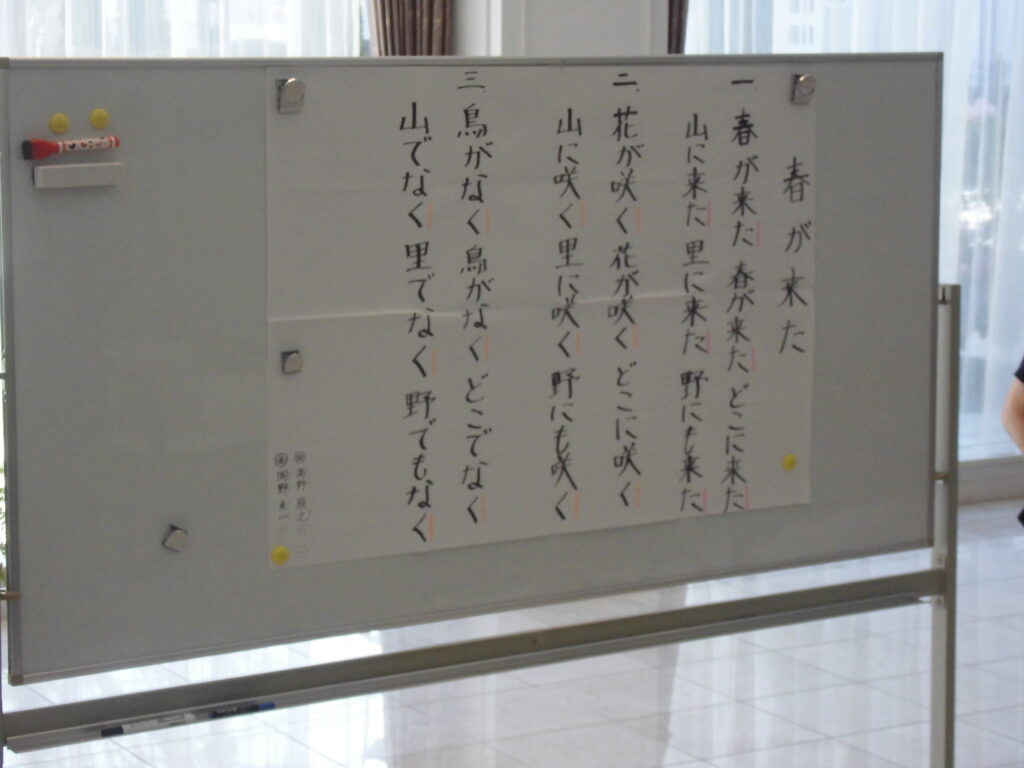 春が来た
一 春が来た 春が来た どこに来た
山に来た 里に来た 野にも来た
二、花が咲く 花が咲く どこに咲く
山に咲く 里に咲く 野にも咲く
三、鳥がなく 鳥がなく どこでなく
山でなく 里でなく 野でもなく
高野 辰之
岡野 貞一